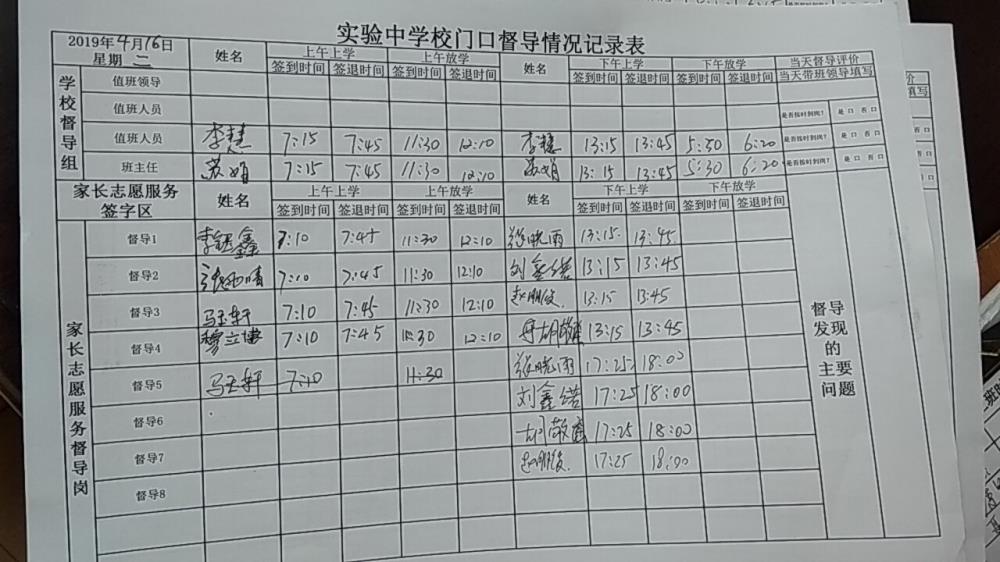 实验中学校门口督导情况记录表
2019年4月16日 星期 二 姓名 上午上学 上午放学 姓名 下午上学 下午放学 当天督导评价
签到时间 签退时间 签到时间 签退时间 签到时间 签退时间 签到时间 签退时间 当天带班领导填写
学校督导组
值班领导
值班人员 是否按时到岗? 是口 否口
值班人员 李慧 7:15 7:45 11:30 12:10 李慧 13:15 13:45 5:30 6:20 是否按时到岗? 是口 否口
班主任 苏娟 7:15 7:45 11:30 12:10 苏娟 13:15 13:45 5:30 6:20 是否按时到岗? 是口 否口
家长志愿服务签字区 姓名 上午上学 上午放学 姓名 下午上学 下午放学
签到时间 签退时间 签到时间 签退时间 签到时间 签退时间 签到时间 签退时间
家长志愿服务督导岗
督导1 7:10 7:45 11:30 12:10 张晓雨 13:15 13:45
督导2 7:10 7:45 11:30 12:10 刘鑫诺 13:15 13:45
督导3 马玉轩 7:10 7:45 11:30 12:10 赵朋俊 13:15 13:45
督导4 穆立博 7:10 7:45 11:30 12:10 13:15 13:45
督导5 马玉轩 7:10 11:30 张晓雨 17:25 18:00
督导6 刘鑫诺 17:25 18:00
17:25 18:00
督导7 赵朋俊 17:25 18:00
督导8
督导发现的主要问题